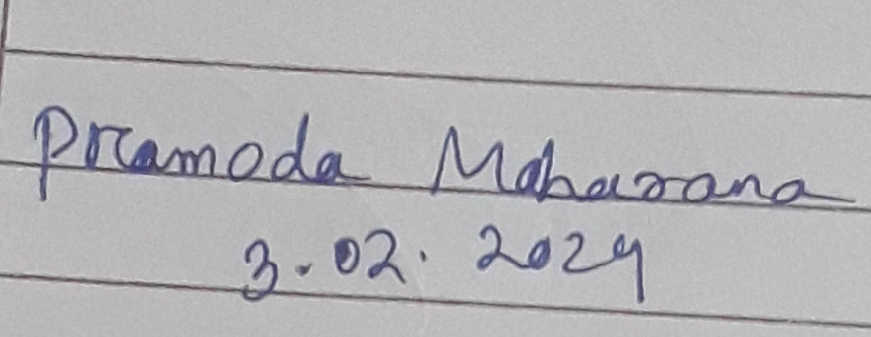 Pramoda Maharana
3.02.2024